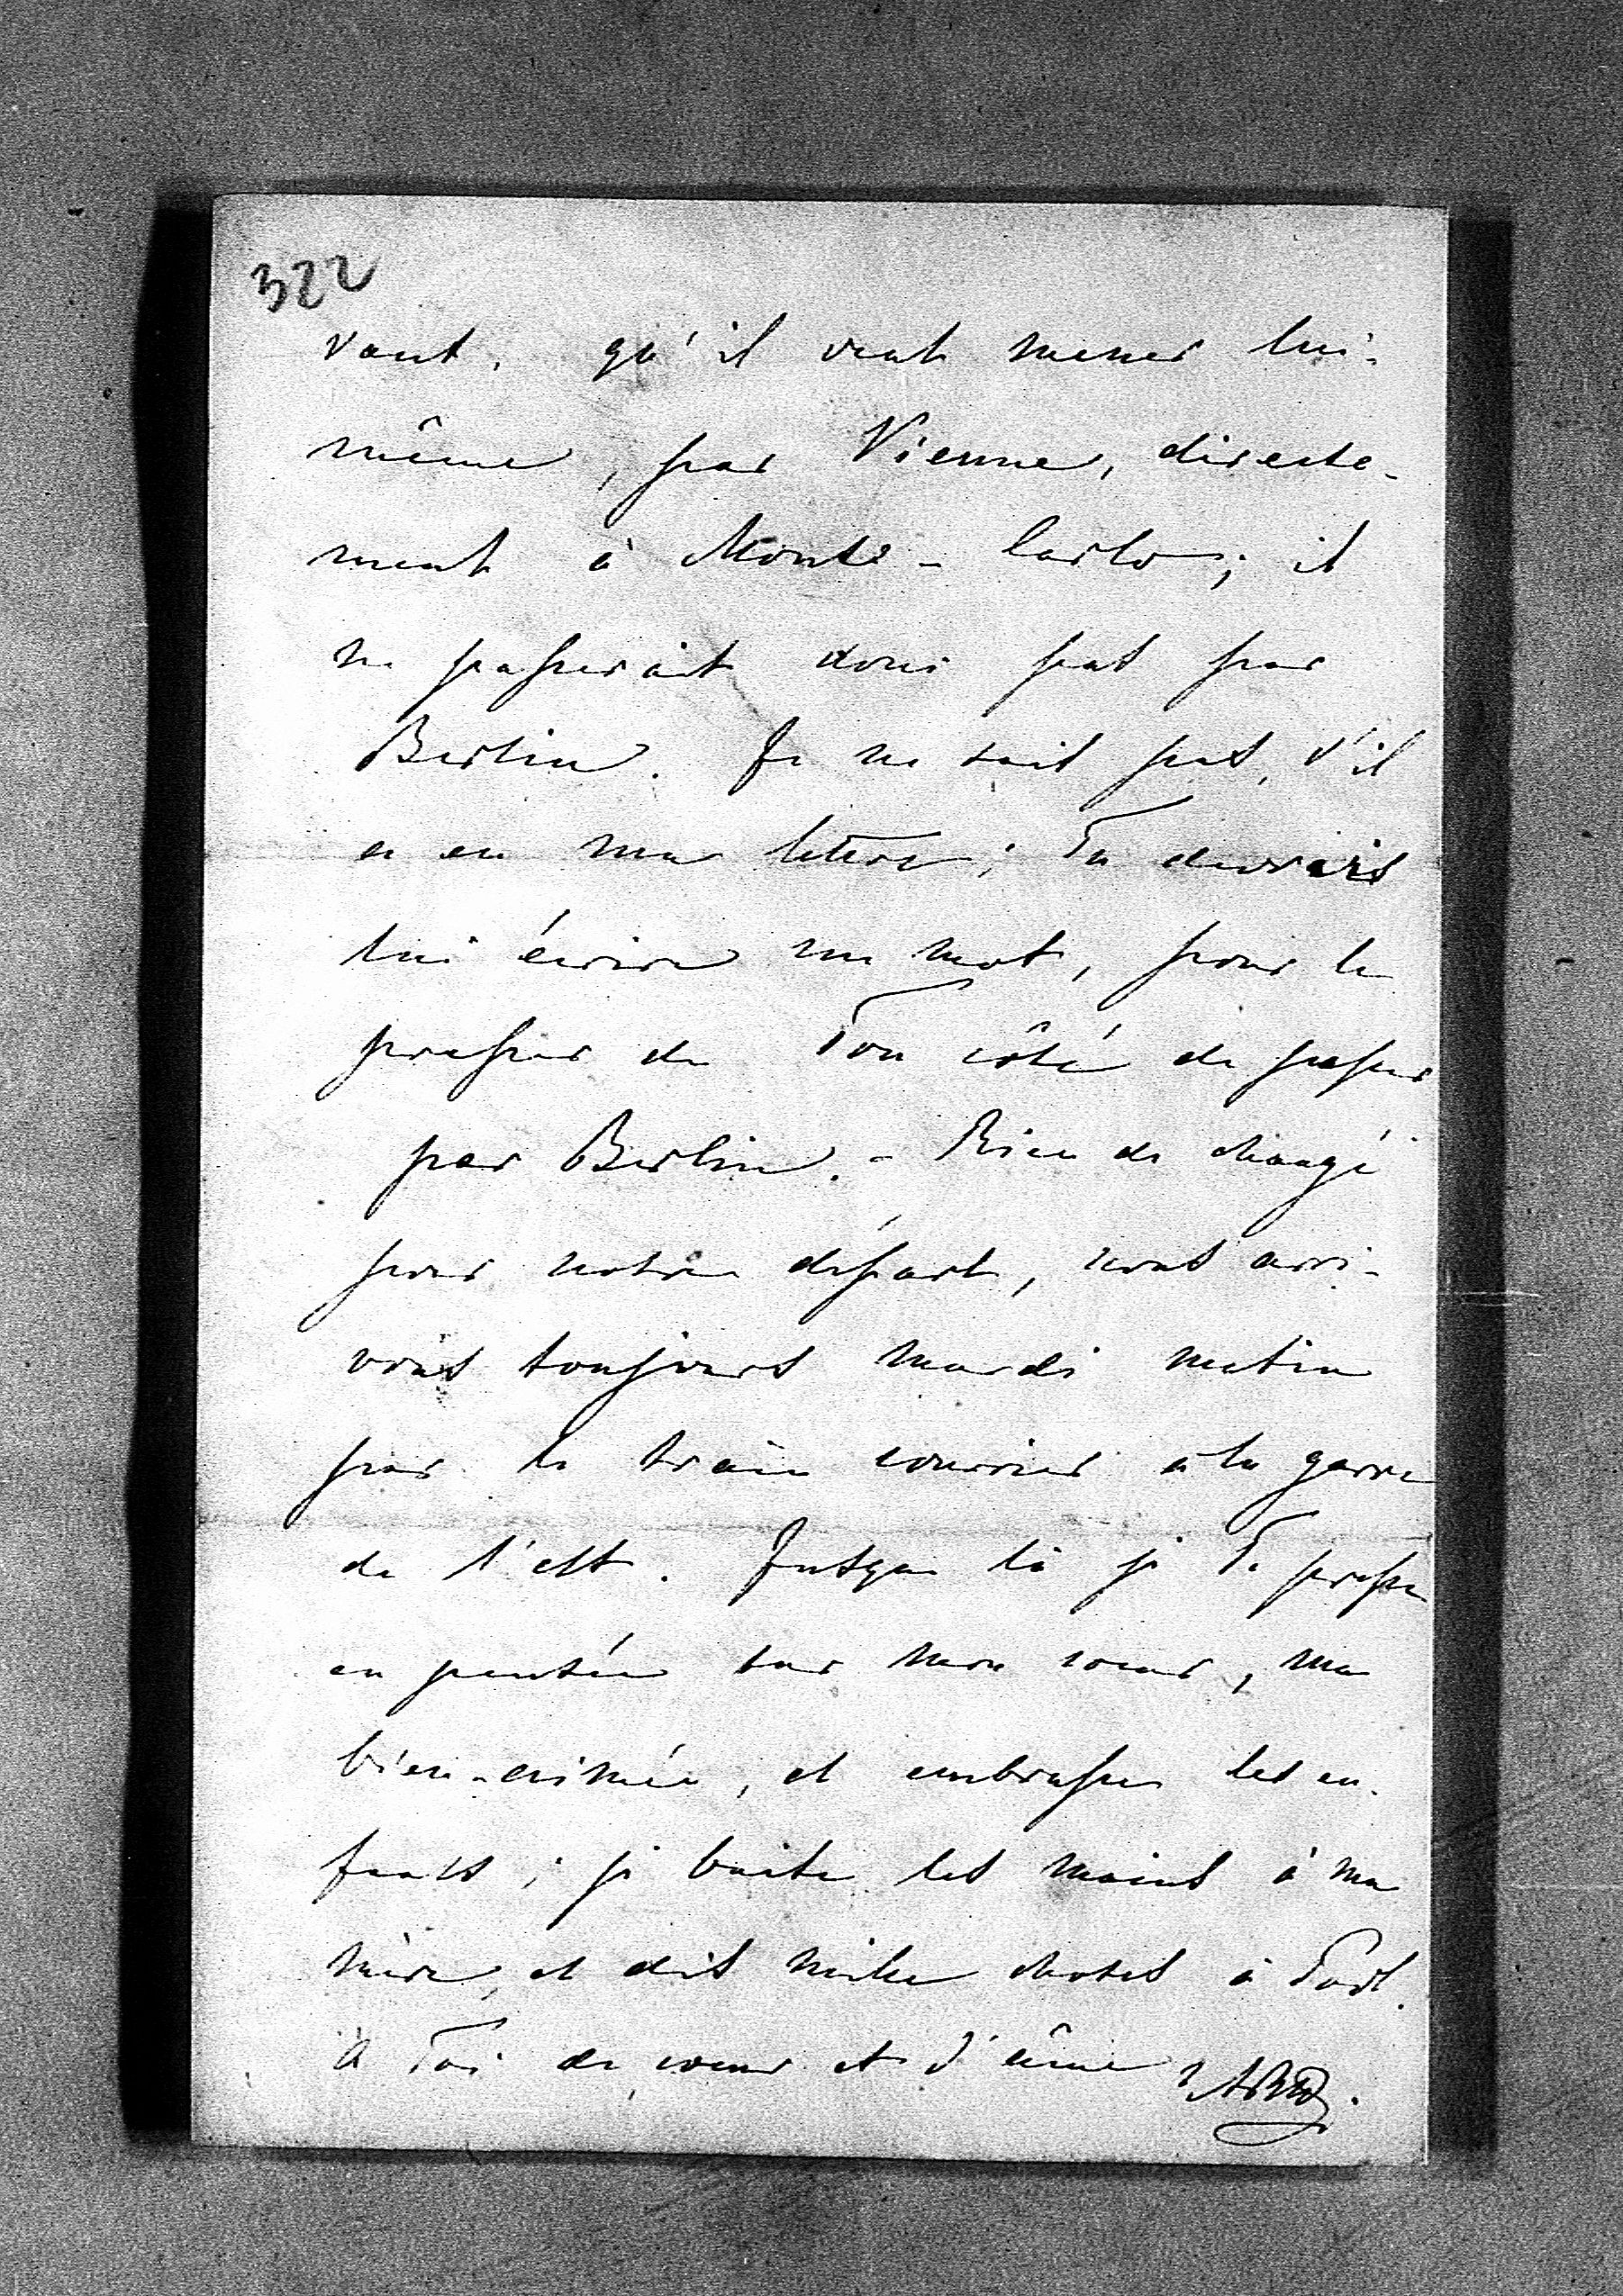 322
vant, qu'il veut mener lui-
même, par Vienne, directe-
ment à Monte-Carlo; il
ne passerait donc pas par
Berlin. Je ne sais pas, s'il
a eu ma lettre; Tu devrais
lui écrire un mot, pour le
presser de Ton côté de passer
par Berlin. - Rien de changé
pour notre départ, nous arri-
vons toujours mardi matin
par le train courrier à la garre
de l'est. Jusque là je Te presse
en pensée sur mon coeur, ma
bien-aimée, et embrasse les en-
fants; je baise les mains à ma
mère, et dis mille choses à
à Toi de coeur et d'âme